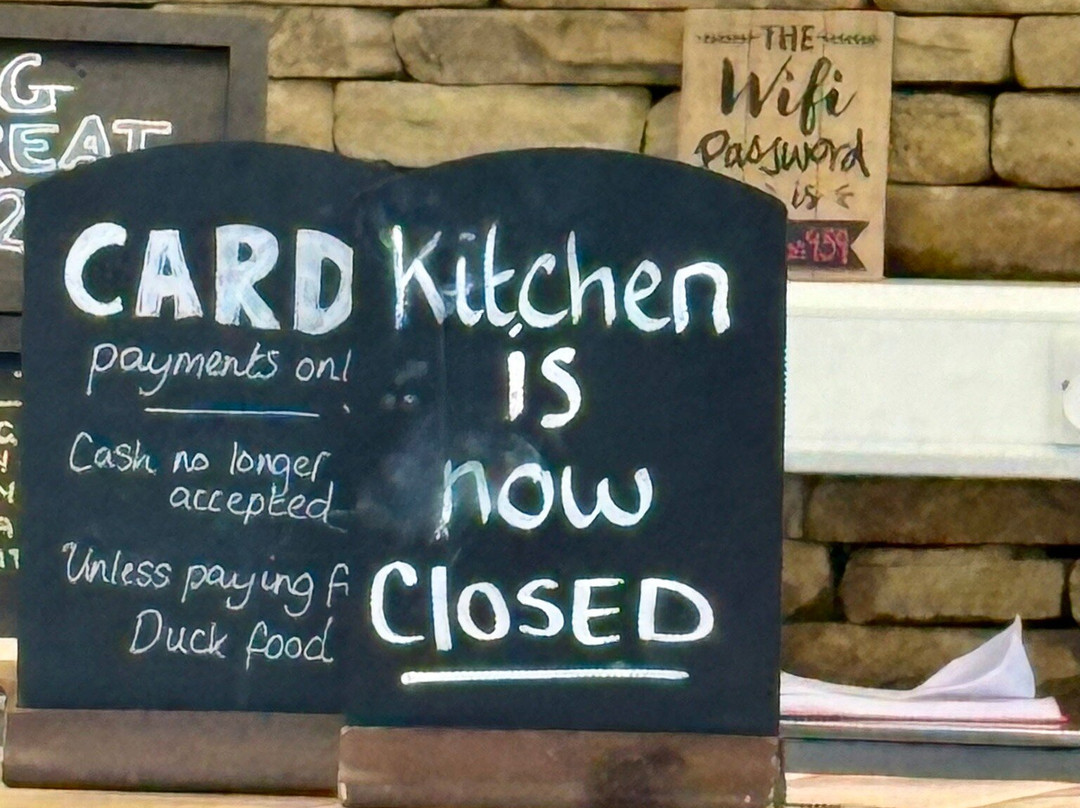 G
REAT
2
CARD
payments onl
Cash no longer
accepted
Unless paying f
Duck food
Kitchen
is
now
CLOSED
THE
Wifi
Password
is
959